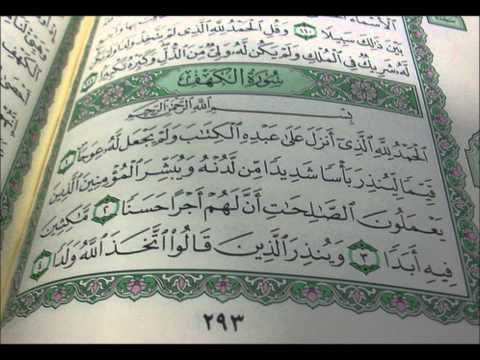 بَيْنَ ذَٰلِكَ سَبِيلًا ١١٠ وَقُلِ الْحَمْدُ لِلَّهِ الَّذِي لَمْ يَتَّخِذْ وَلَدًا وَلَمْ يَكُن
لَّهُ شَرِيكٌ فِي الْمُلْكِ وَلَمْ يَكُن لَّهُ وَلِيٌّ مِّنَ الذُّلِّ وَكَبِّرْهُ تَكْبِيرًا ١١١
سُورَةُ الْكَهْفِ
بِسْمِ اللَّهِ الرَّحْمَٰنِ الرَّحِيمِ
الْحَمْدُ لِلَّهِ الَّذِي أَنزَلَ عَلَىٰ عَبْدِهِ الْكِتَابَ وَلَمْ يَجْعَل لَّهُ عِوَجًا ١
قَيِّمًا لِّيُنذِرَ بَأْسًا شَدِيدًا مِّن لَّدُنْهُ وَيُبَشِّرَ الْمُؤْمِنِينَ الَّذِينَ
يَعْمَلُونَ الصَّالِحَاتِ أَنَّ لَهُمْ أَجْرًا حَسَنًا ٢ مَّاكِثِينَ
فِيهِ أَبَدًا ٣ وَيُنذِرَ الَّذِينَ قَالُوا اتَّخَذَ اللَّهُ وَلَدًا ٤
٢٩٣